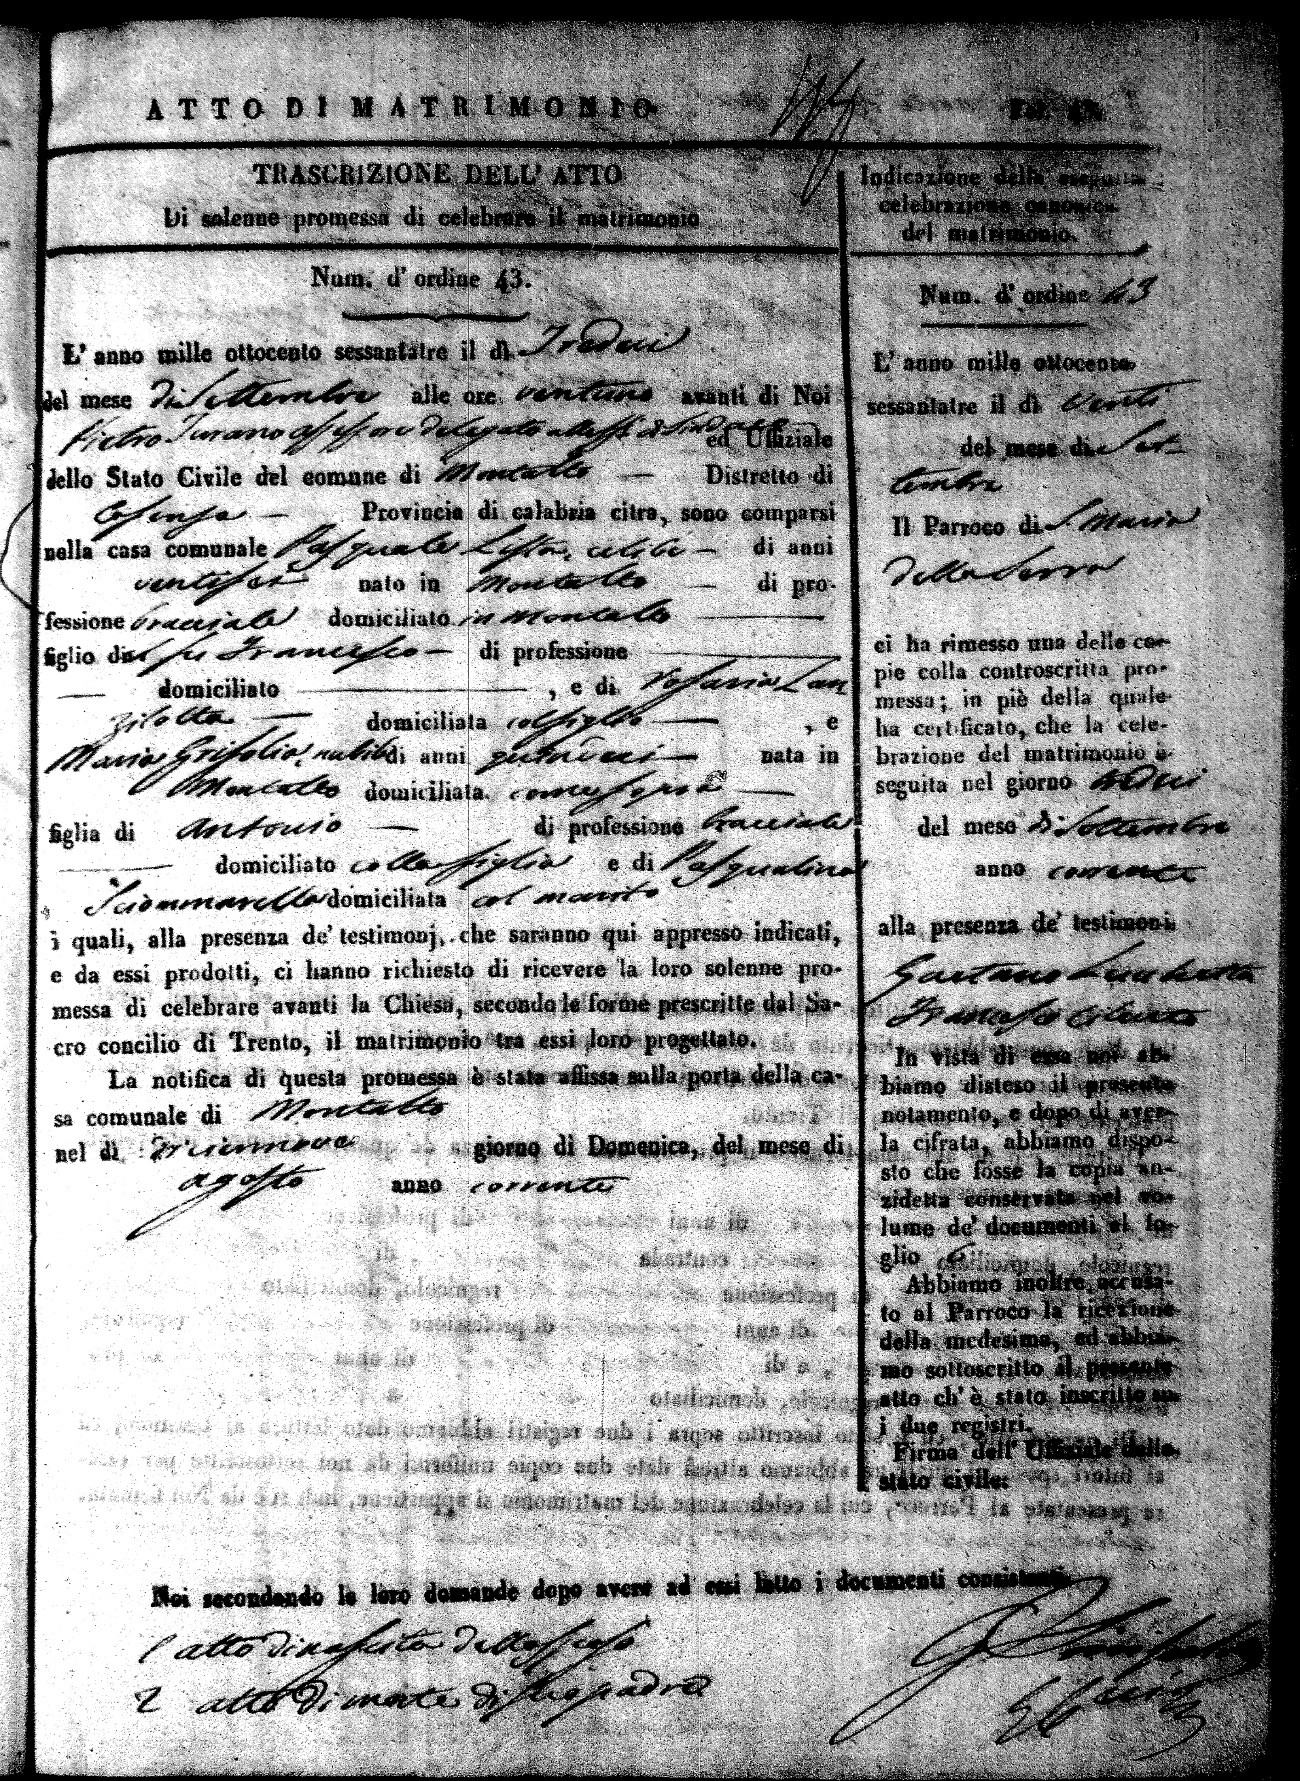 ATTO DI MATRIMONIO
TRASCRIZIONE DELL' ATTO
Di solenne promessa di celebrare il matrimonio
Num. d' ordine 43.
L' anno mille ottocento sessantatre il dì Tredeci
del mese di Settembre alle ore ventuno avanti di Noi
Pietro Turano ed Uffiziale
dello Stato Civile del comune di Montalto — Distretto di
Cosenza — Provincia di calabria citra, sono comparsi
nella casa comunale Pasquale celibe — di anni
ventisei nato in Montalto — di pro-
fessione bracciale domiciliato in Montalto —
figlio del fu Francesco — di professione —
— domiciliato — , e di Rosaria Lan
zillotta — domiciliata col figlio — , e
Maria Grisolia, nubile di anni quindeci — nata in
Montalto domiciliata come sopra —
figlia di Antonio — di professione bracciale
— domiciliato colla figlia e di Pasqualina
Sciammarella domiciliata col marito
i quali, alla presenza de' testimonj, che saranno qui appresso indicati,
e da essi prodotti, ci hanno richiesto di ricevere la loro solenne pro-
messa di celebrare avanti la Chiesa, secondo le forme prescritte dal Sa-
cro concilio di Trento, il matrimonio tra essi loro progettato.
La notifica di questa promessa è stata affissa sulla porta della ca-
sa comunale di Montalto
nel dì giorno di Domenica, del mese di
agosto anno corrente
Noi secondando le loro domande dopo avere ad essi latto i documenti consistenti
1 atto di nascita dello sposo
2 atto di morte di suo padre
Indicazione della seguita
celebrazione canonica
del matrimonio.
Num. d' ordine 43
L' anno mille ottocento
sessantatre il dì venti
del mese di Set-
tembre
Il Parroco di S. Maria
della Serra
ci ha rimesso una delle co-
pie colla controscritta pro-
messa; in piè della quale
ha certificato, che la cele-
brazione del matrimonio è
seguita nel giorno tredeci
del mese di Settembre
anno corrente
alla presenza de' testimoni
Gaetano
Francesco
In vista di essa noi ab-
biamo disteso il presente
notamento, e dopo di aver-
la cifrata, abbiamo dispo-
sto che fosse la copia an-
zidetta conservata nel vo-
lume de' documenti al fo-
glio 6
Abbiamo inoltre accusa-
to al Parroco la ricezione
della medesima, ed abbia-
mo sottoscritto il presente
atto ch' è stato inscritto su
i due registri.
Firma dell' Uffiziale dello
stato civile: